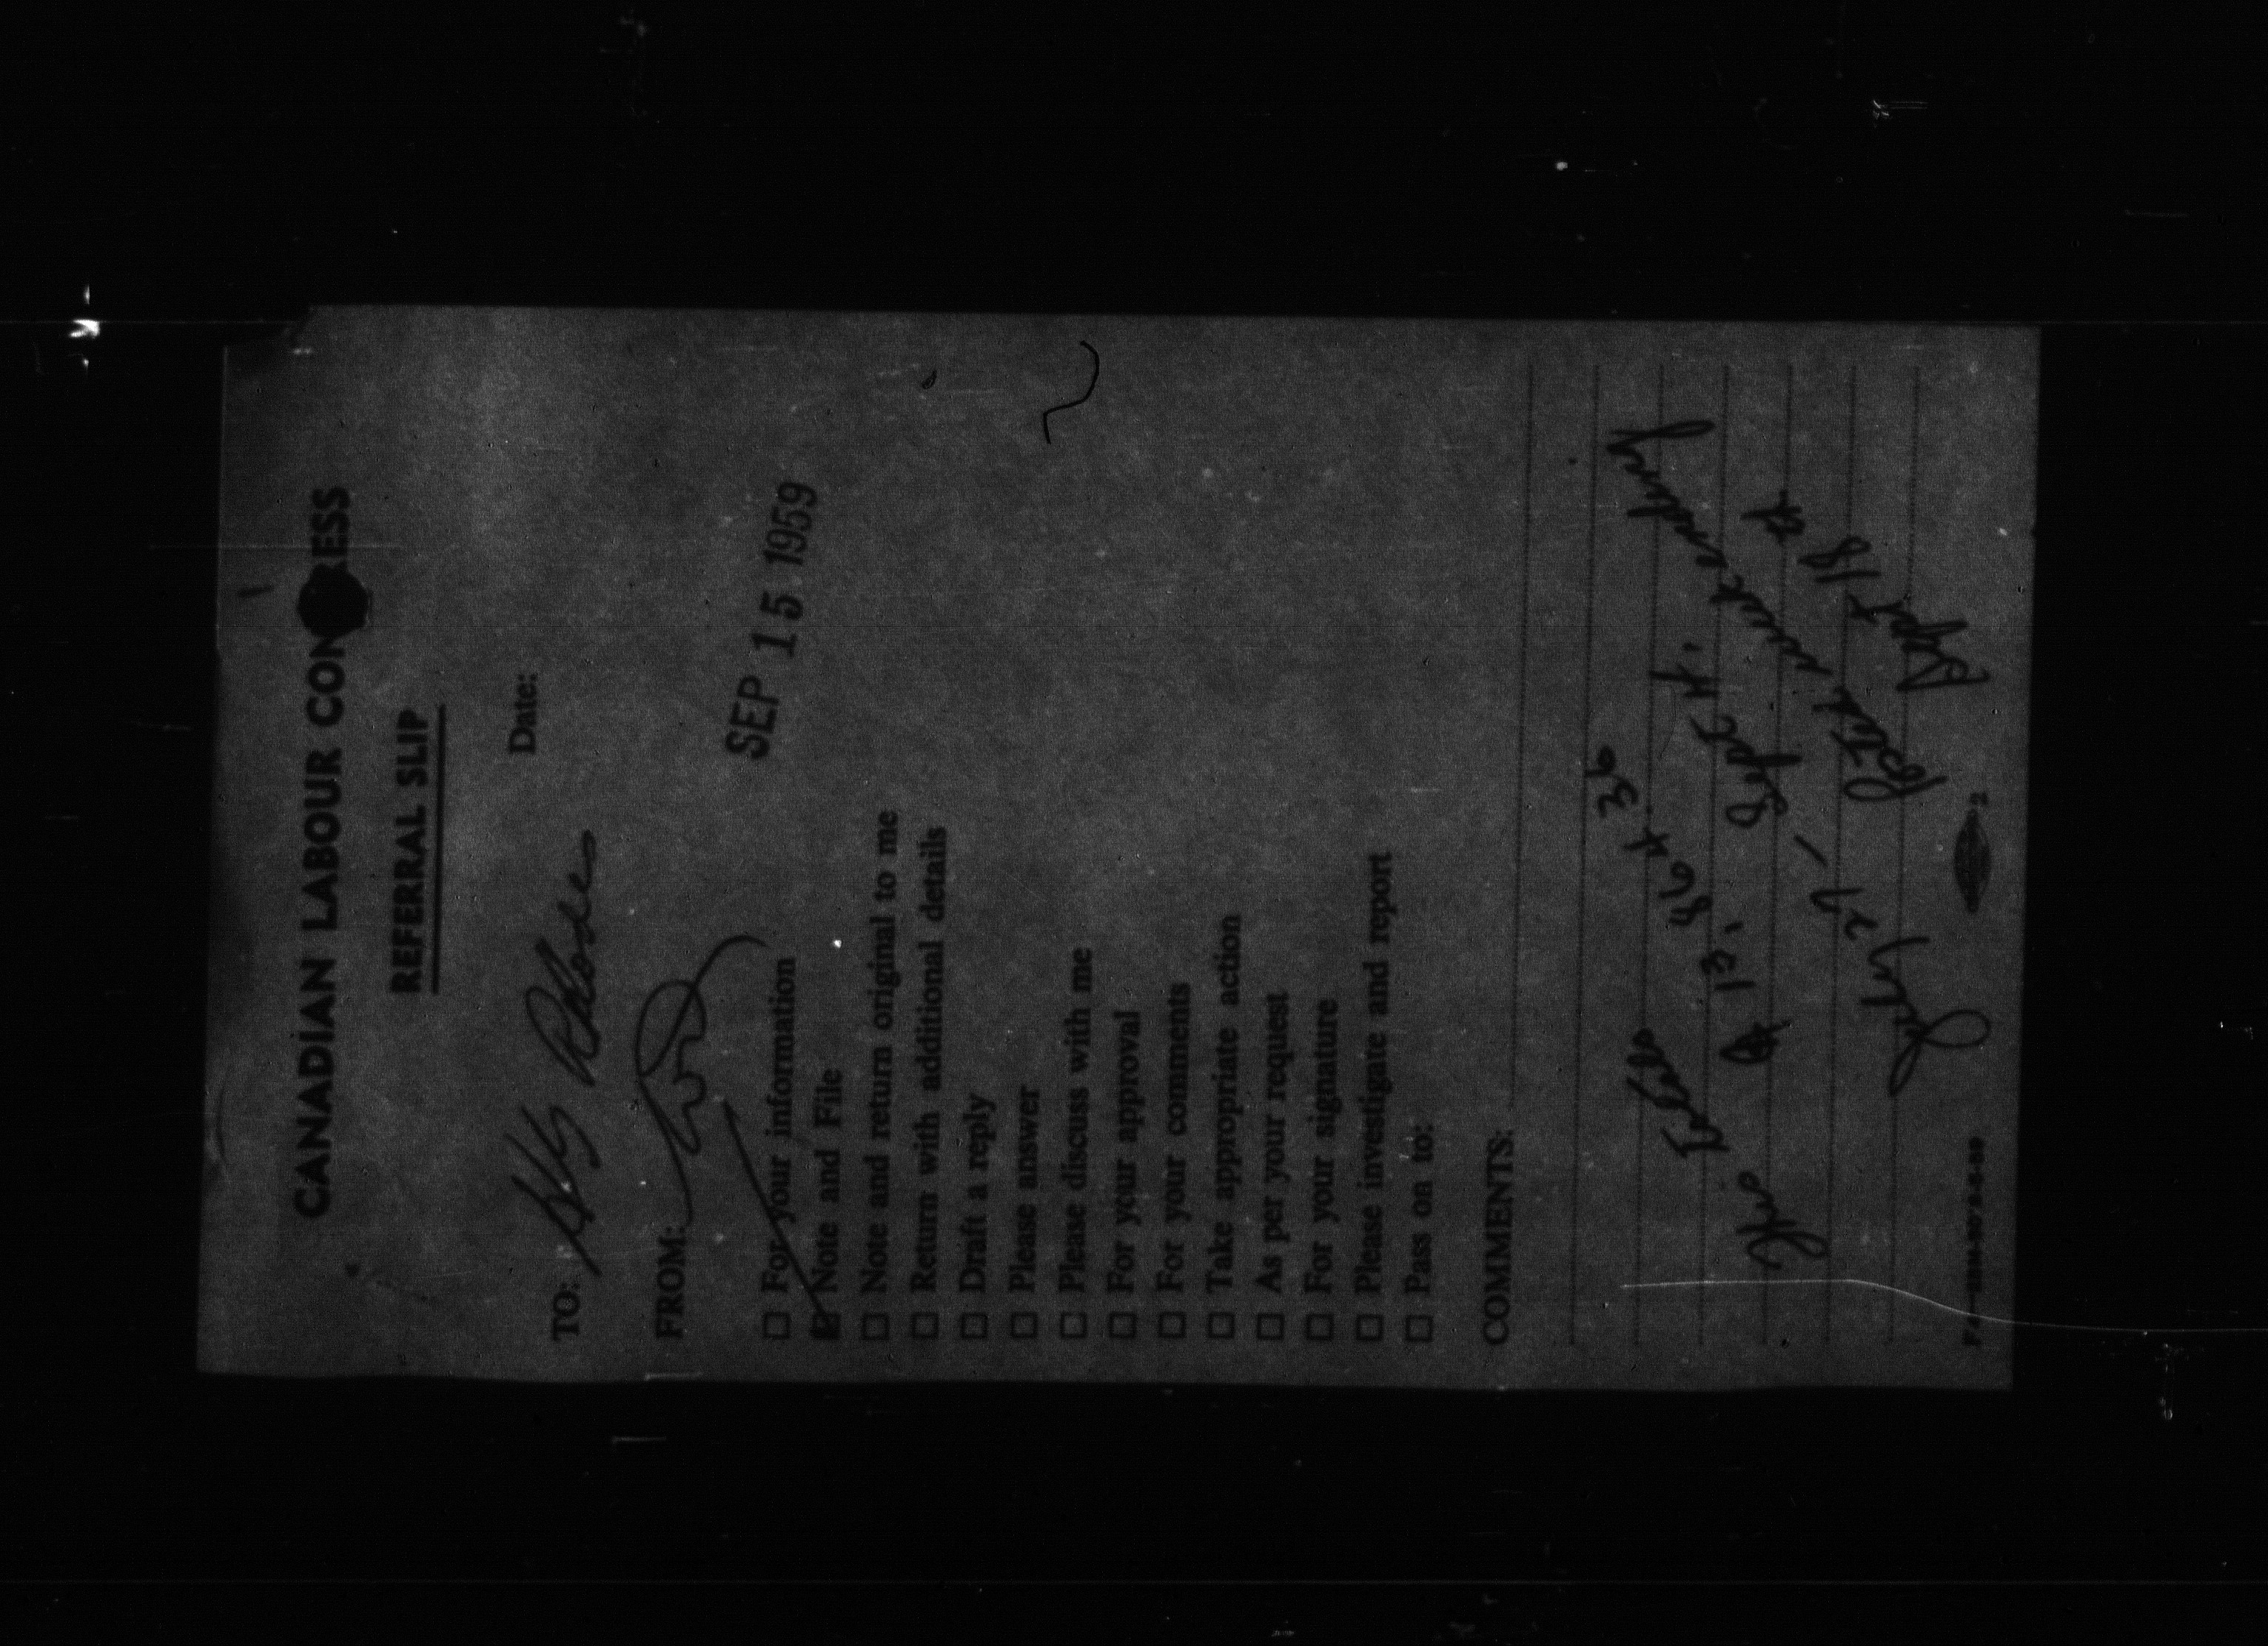 CANADIAN LABOUR CONGRESS
REFERRAL SLIP
Date:
TO: Rhodes
FROM:
SEP 15 1959
For your information
Note and File
Note and return original to me
Return with additional details
Draft a reply
Please answer
Please discuss with me
For your approval
For your comments
Take appropriate action
As per your request
For your signature
Please investigate and report
Pass on to:
COMMENTS:
This totals
$ 13,864 36
July 27 - Sept 4.
week ending
Sept 18 th
2